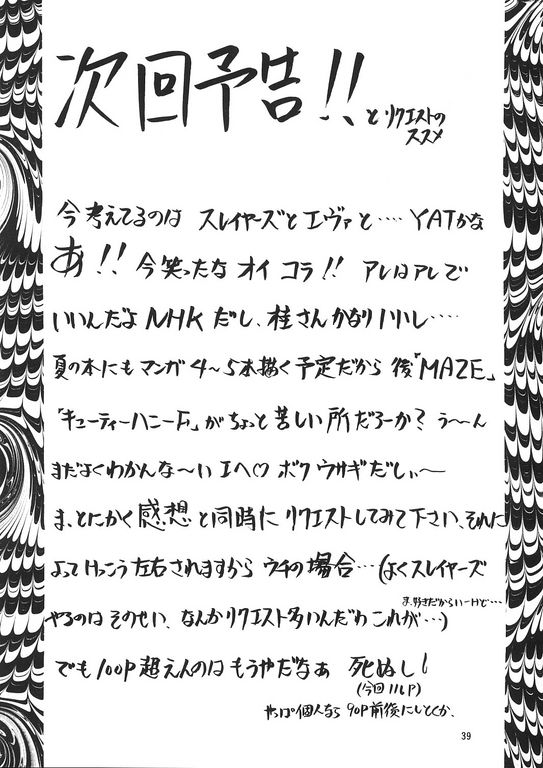 次回予告!! とリクエストの
ススメ
今考えてるのは スレイヤーズとエヴァと…‥YATかな
あ!! 今笑ったな オイ コラ!! アレはアレで
いいんだよ NHKだし、桂さんかなりいいし…‥
夏の本にもマンガ4〜5本描く予定だから 後「MAZE」
「キューティーハニーF」がちょっと苦しい所だろーか? う〜〜ん
まだよくわかんな〜い エヘ♡ ボク ウサギだしぃ〜
ま、とにかく感想と同時に リクエストしてみて下さい、それに
よってけっこう左右されますから ウチの場合…(よくスレイヤーズ
ま、好きだからいーけど…
やるのは そのせい、なんかリクエスト多いんだわ これが…)
でも100P超えんのは もうやだなぁ 死ぬし!
(今回112P)
やっぱ個人なら 90P前後にしとくか、
39